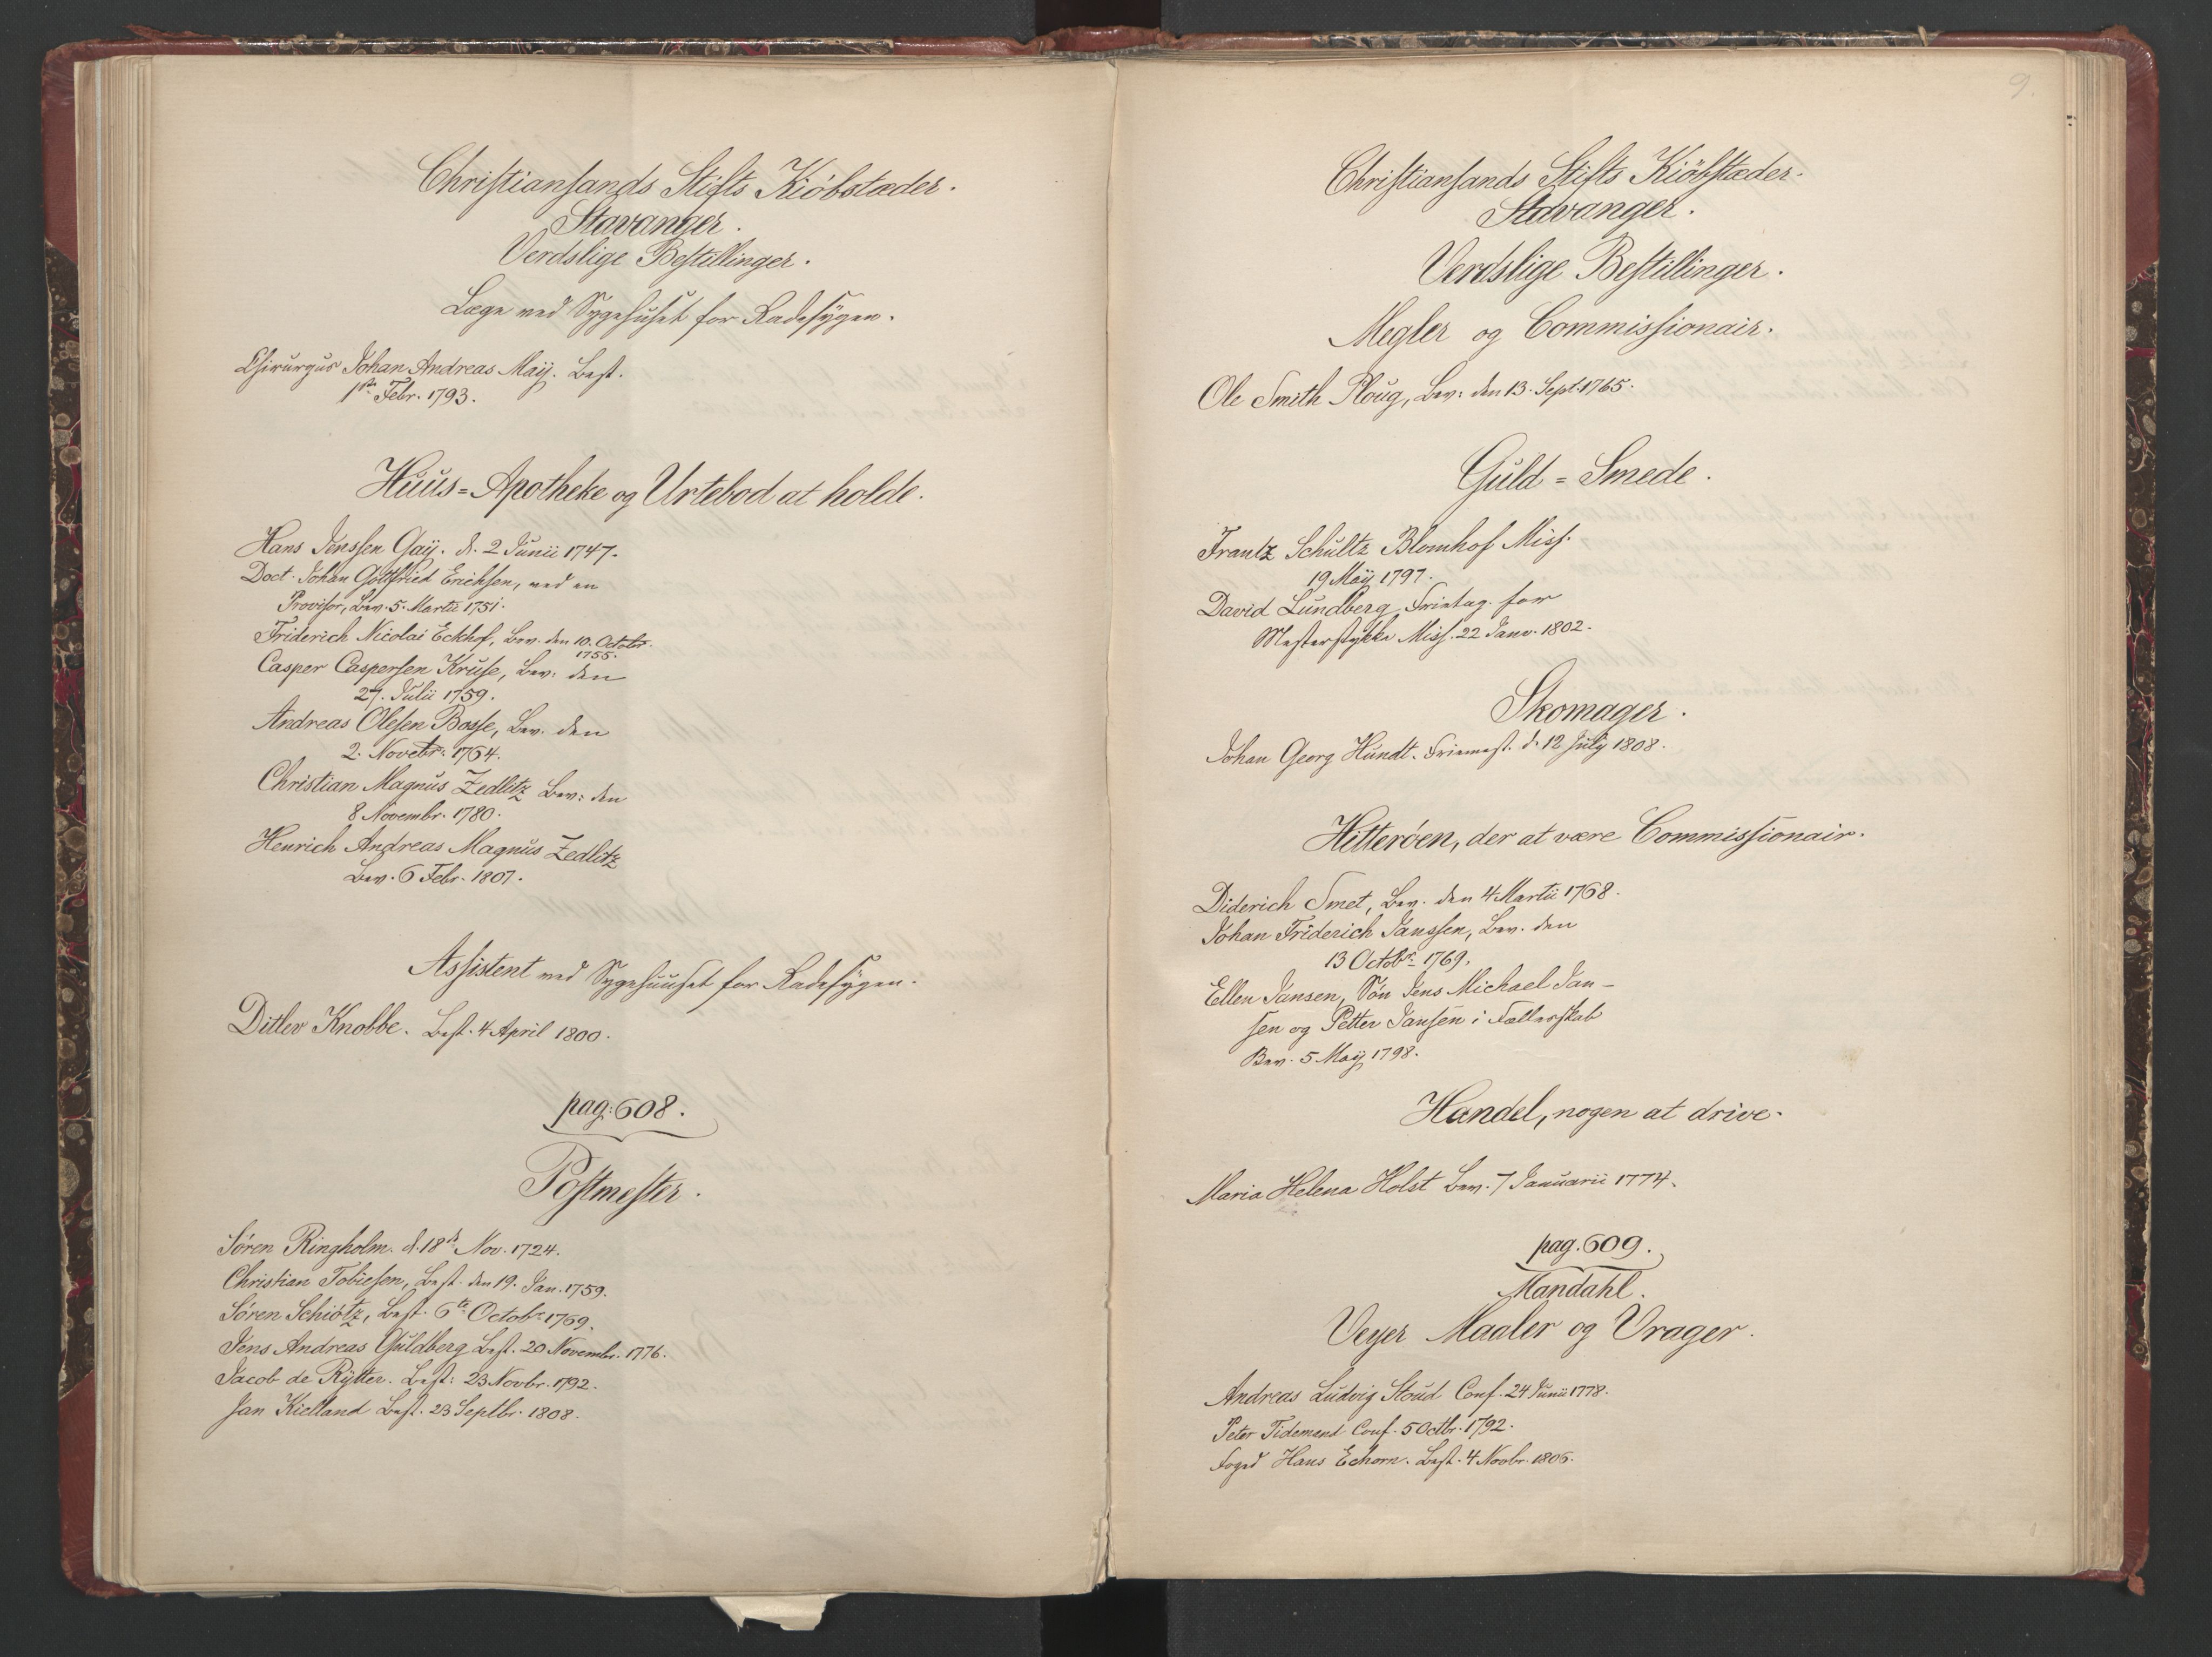 Christiansands Stifts Kiöbstæder.
Stavanger.
Verdslige Bestillinger.
Læge ved Sygehuset for Radesygen.
Chirurgus Johan Andreas Maÿ. Best.
1ste Febr. 1793.
Huus=Apotheke og Urtebod at holde.
Hans Jenssen Gaÿ. d. 2 Junii 1747.
Doct. Johan Gottfried Erichsen, ved en
Provisor, Bev. 5. Martii 1751.
Friderich Nicolai Eckhof, Bev. den 10. Octobr.
1755.
Casper Caspersen Kruse, Bev. den
27. Julii 1759.
Andreas Olesen Bosse, Bev. den
2. Novebr. 1764.
Christian Magnus Zedlitz Bev: den
8 Novembr. 1780.
Henrich Andreas Magnus Zedlitz
Bev. 6 Febr. 1807.
Assistent ved Sygehuuset for Radesygen.
Ditlev Knobbe. Best. 4 April 1800.
pag: 608.
Postmester.
Sören Ringholm. d. 18de Nov. 1724.
Christian Tobiesen, Best. den 19. Jan. 1759.
Sören Schiötz, Best. 6te Octobr 1769.
Jens Andreas Guldberg Best. 20 Novembr. 1776.
Jacob de Rÿtter. Best: 23 Novbr. 1792.
Jan Kielland Best. 23 Septbr. 1808.
9.
Christiansands Stifts Kiöbstæder.
Stavanger.
Verdslige Bestillinger.
Megler og Commissionair.
Ole Smith Ploug, Bev: den 13. Sept. 1765.
Guld=Smede.
Frantz Schultz Blomhof Miss.
19 Maÿ 1797.
David Lundberg Frietag. for
Mesterstykke Miss. 22 Janv. 1802.
Skomager.
Johan Georg Hundt. Friemest. d. 12 July 1808.
Hitteröen, der at være Commissionair.
Diderich Smet, Bev. den 4 Martii 1768.
Johan Friderich Janssen, Bev. den
13 Octobr. 1769.
Ellen Jansen, Sön Jens Michael Jan-
sen og Petter Jansen i Fællesskab
Bev. 5 Maÿ 1798.
Handel, nogen at drive.
Maria Helena Holst Bev. 7 Januarii 1774.
pag. 609.
Mandahl.
Veyer Maaler og Vrager.
Andreas Ludvig Stoud Conf. 24 Junii 1778.
Peter Tidemand Conf. 5 Octbr. 1792.
Foged Hans Echorn. Best. 4 Novbr. 1806.